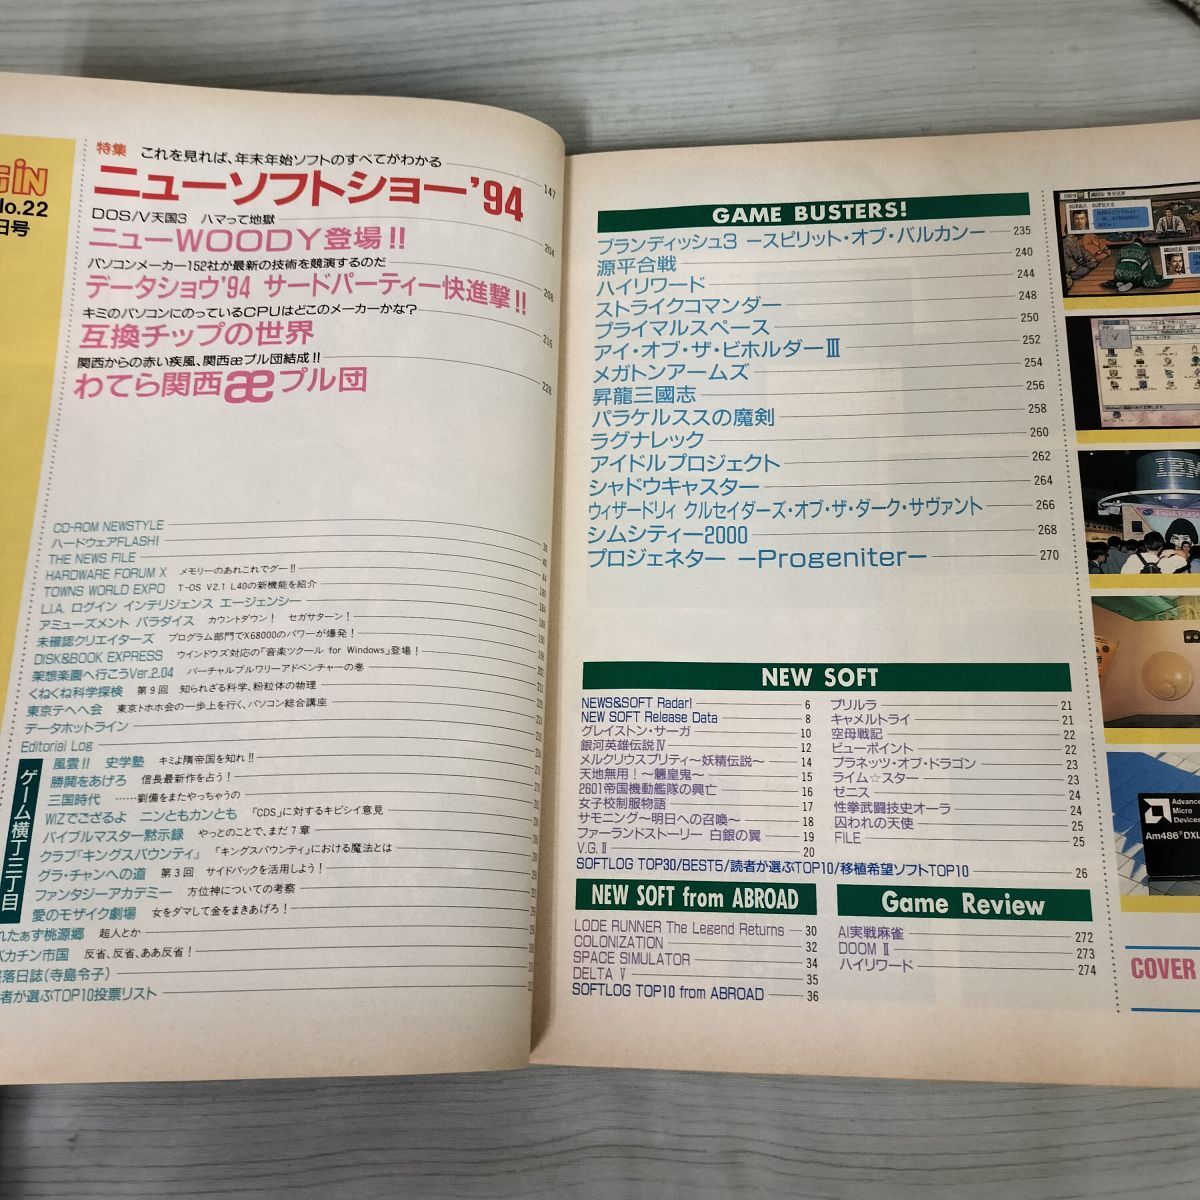 GiN
No.22
日号
特集 これを見れば、年末年始ソフトのすべてがわかる
ニューソフトショー'94 147
DOS/V天国3 ハマって地獄
ニューWOODY登場!! 204
パソコンメーカー152社が最新の技術を競演するのだ
データショウ'94 サードパーティー快進撃!! 208
キミのパソコンにのっているCPUはどこのメーカーかな?
互換チップの世界 216
関西からの赤い疾風、関西æプル団結成!!
わてら関西æプル団 228
CD-ROM NEWSTYLE
ハードウェアFLASH! 38
THE NEWS FILE 40
HARDWARE FORUM X メモリーのあれこれでグー!! 44
TOWNS WORLD EXPO T-OS V2.1 L40の新機能を紹介
L.I.A. ログイン インテリジェンス エージェンシー
アミューズメント パラダイス カウントダウン! セガサターン!
未確認クリエイターズ プログラム部門でX68000のパワーが爆発!
DISK&BOOK EXPRESS ウインドウズ対応の「音楽ツクール for Windows」登場!
架想楽園へ行こうVer.2.04 バーチャルブルワリーアドベンチャーの巻
くねくね科学探検 第9回 知られざる科学、粉粒体の物理
東京テヘヘ会 東京トホホ会の一歩上を行く、パソコン総合講座
データホットライン
Editorial Log
ゲーム横丁三丁目
風雲!! 史学塾 キミよ隋帝国を知れ!!
勝鬨をあげろ 信長最新作を占う!
三国時代 ……劉備をまたやっちゃうの
WIZでござるよ ニンともカンとも 「CDS」に対するキビシイ意見
バイブルマスター黙示録 やっとのことで、まだ7章
クラブ『キングスバウンティ』 「キングスバウンティ」における魔法とは
グラ・チャンへの道 第3回 サイドバックを活用しよう!
ファンタジーアカデミー 方位神についての考察
愛のモザイク劇場 女をダマして金をまきあげろ!
れたぁず桃源郷 超人とか
バカチン市国 反省、反省、ああ反省!
落日誌(寺島令子)
者が選ぶTOP10投票リスト
GAME BUSTERS!
ブランディッシュ3 −スピリット・オブ・バルカン− 235
源平合戦 240
ハイリワード 244
ストライクコマンダー 248
プライマルスペース 250
アイ・オブ・ザ・ビホルダーⅢ 252
メガトンアームズ 254
昇龍三國志 256
パラケルススの魔剣 258
ラグナレック 260
アイドルプロジェクト 262
シャドウキャスター 264
ウィザードリィ クルセイダーズ・オブ・ザ・ダーク・サヴァント 266
シムシティー2000 268
プロジェネター −Progeniter− 270
NEW SOFT
NEWS&SOFT Radar! 6
NEW SOFT Release Data 8
グレイストン・サーガ 10
銀河英雄伝説Ⅳ 12
メルクリウスプリティ〜妖精伝説〜 14
天地無用!〜魎皇鬼〜 15
2601帝国機動艦隊の興亡 16
女子校制服物語 17
サモニング〜明日への召喚〜 18
ファーランドストーリー 白銀の翼 19
V.G.Ⅱ 20
プリルラ 21
キャメルトライ 21
空母戦記 22
ビューポイント 22
プラネッツ・オブ・ドラゴン 23
ライム☆スター 23
ゼニス 24
性拳武闘技史オーラ 24
囚われの天使 25
FILE 25
SOFTLOG TOP30/BEST5/読者が選ぶTOP10/移植希望ソフトTOP10 26
NEW SOFT from ABROAD
LODE RUNNER The Legend Returns 30
COLONIZATION 32
SPACE SIMULATOR 34
DELTA V 35
SOFTLOG TOP10 from ABROAD 36
Game Review
AI実戦麻雀 272
DOOM Ⅱ 273
ハイリワード 274
IBM
Advanced
Micro
Devices
Am486 DXL
COVER